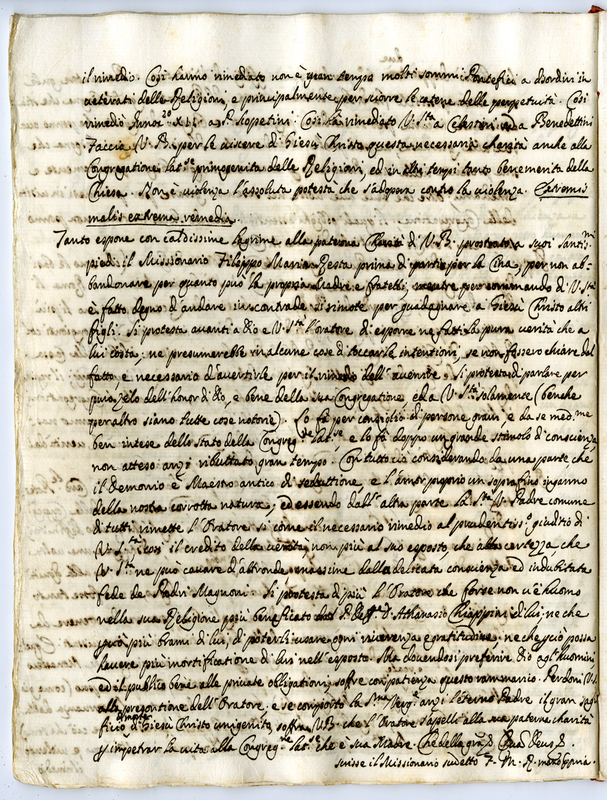 il rimedio. Così hanno rimediato non è gran tempo molti sommi Pontefici a disordini in
veterati delle Religioni, e principalmente per sciorre le catene delle perpetuità. Così
rimediò Innoc.º XII a Scoppetini. Così ha rimediato V. S.tà a Celestini ed a Benedettini
Faccia V. B. per le viscere di Giesù Christo questa necessaria charità anche alla
Congregatione Lat.se primogenita delle Religioni, ed in altri tempi tanto benemerita della
Chiesa. Non è violenza l'assoluta potestà che s'adopra contro la violenza. Extremis
malis extrema remedia.
Tanto espone con caldissime lagrime alla paterna Charità di V. B. prostrato a suoi Santis.mi
piedi il Missionario Filippo Maria Resta prima di partir per la Cina, per non ab-
bandonare per quanto può la propria Madre e fratelli, mentre per commando di V. S.tà
è fatto degno di andare in contrade sì rimote per guadagnare a Giesù Christo altri
figli. Si protesta avanti a Dio e V. S.tà l'Oratore di esporre ne fatti la pura verità che a
lui costa, ne presumerebbe in alcune cose di toccar le intentioni, se non fossero chiare dal
fatto e necessario d'avertirle per il rimedio dell'avenire. Si protesta di parlare per
puro zelo dell'honor di Dio, e bene della sua Congregatione ed a V. S.tà solamente (benche
per altro siano tutte cose notorie). Lo fà per consiglio di persone gravi, e da se med.me
ben intese dello stato della Congreg.ne Lat.se e lo fà doppo un grande stimolo di conscienza,
non atteso anzi ributtato gran tempo. Con tutto ciò considerando da una parte, che
il Demonio è Maestro antico di seduttione, e l'amor proprio un soprafino inganno
della nostra corrotta natura; ed essendo dall'altra parte la S.tà V. Padre comune
di tutti rimette l'Oratore sì come il necessario rimedio al prudentiss.º giuditio di
V. S.tà così il credito della verità, non più al suo esposto, che alla certezza, che
V. S.tà ne può cavare d'altronde, e massime dalla delicata conscienza ed indubitata
fede de Padri Magnoni. Si protesta di più l'Oratore che forse non v'è huomo
nella sua Religione più beneficato dal P. D. Athanasio Chiappini di lui, ne che
può più brami di lui, di poterli usare ogni riverenza e gratitudine, ne che può possa
havere più mortificatione di lui nell'esposto. Ma dovendosi preferire Dio agl'huomini
ed il publico bene alle private obligationi, soffre con patienza questo ramarico. Perdoni V. S.
alla prosontione dell'Oratore, e se comportò la anzi l'eterno Padre il gran sag-
ficio di Giesù Christo unigenito, soffra V. B. che l'Oratore s'apelli alla sua paterna charità
p impetrar la vita alla Congreg.ne Lat.se che è sua Madre. Che della gra. Quas Deus
scrisse il Missionario sudetto F. M. R. mano ppria.